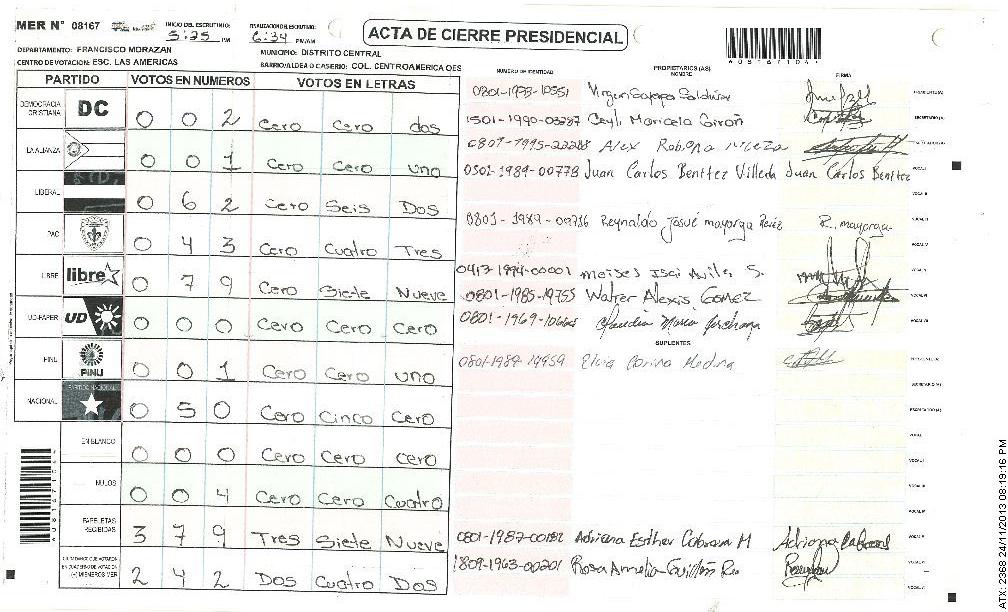 MER N° 08167
INICIO DEL ESCRUTINIO: 5:25 PM
FINALIZACION DEL ESCRUTINIO: 6:34 PM/AM
ACTA DE CIERRE PRESIDENCIAL
DEPARTAMENTO: FRANCISCO MORAZAN
MUNICIPIO: DISTRITO CENTRAL
CENTRO DE VOTACION: ESC. LAS AMERICAS
BARRIO/ALDEA O CASERIO: COL. CENTROAMERICA OES
PARTIDO VOTOS EN NUMEROS VOTOS EN LETRAS
DEMOCRACIA CRISTIANA DC 0 0 2 Cero Cero dos
LA ALIANZA 0 0 1 Cero Cero uno
LIBERAL 0 6 2 Cero Seis Dos
PAC 0 4 3 Cero Cuatro Tres
LIBRE libre 0 7 9 Cero Siete Nueve
UD-FAPER UD 0 0 0 Cero Cero Cero
PINU PINU 0 0 1 Cero Cero uno
NACIONAL PARTIDO NACIONAL 0 5 0 Cero Cinco Cero
EN BLANCO 0 0 0 Cero Cero cero
NULOS 0 0 4 Cero Cero Cuatro
PAPELETAS RECIBIDAS 3 7 9 Tres Siete Nueve
CIUDADANOS QUE VOTARON EN CUADERNO DE VOTACION (+) MIEMBROS MER 2 4 2 Dos Cuatro Dos
NUMERO DE IDENTIDAD PROPIETARIOS (AS) NOMBRE FIRMA
0801-1973-10551
1501-1990-03287 Maricela Girón
Alex
0501-1989-00778 Juan Carlos Benítez Villeda Juan Carlos Benítez
0801-1989-09786 Reynaldo Josué mayorga Pérez R. mayorga
moises Isai Avila S.
0801-1985-19755 Walter Alexis Gomez
Claudia Maria
SUPLENTES
Medina
0801-1987-00182 Adriana Esther M Adriana
1809-1963-00201 Rosa Amelia
ATX: 2368 24/11/2013 08:19:16 PM